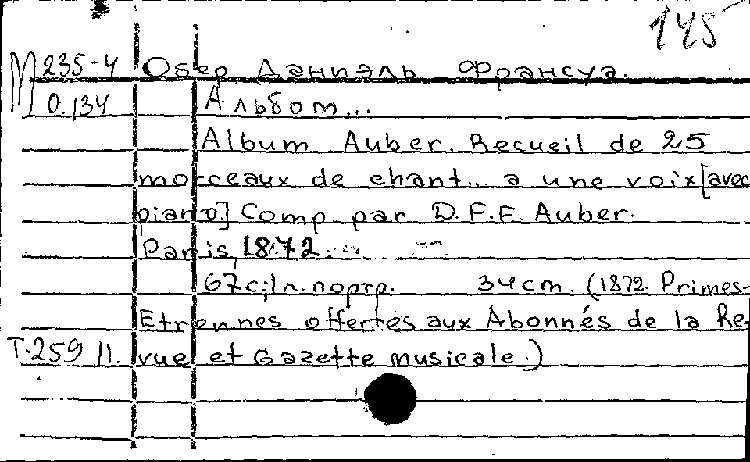 145
M 235-4 Обер Даниэль Франсуа.
О.134 Альбом...
Album Auber. Recueil de 25
morceaux de chant... a une voix [avec
piano] Comp par D.F.E. Auber.
Paris, 1872.
67с; 1л. портр. 34cm. (1872. Primes-
Etrennes offertes aux Abonnés de la Re-
T-259 11. vue et Gazette musicale.)